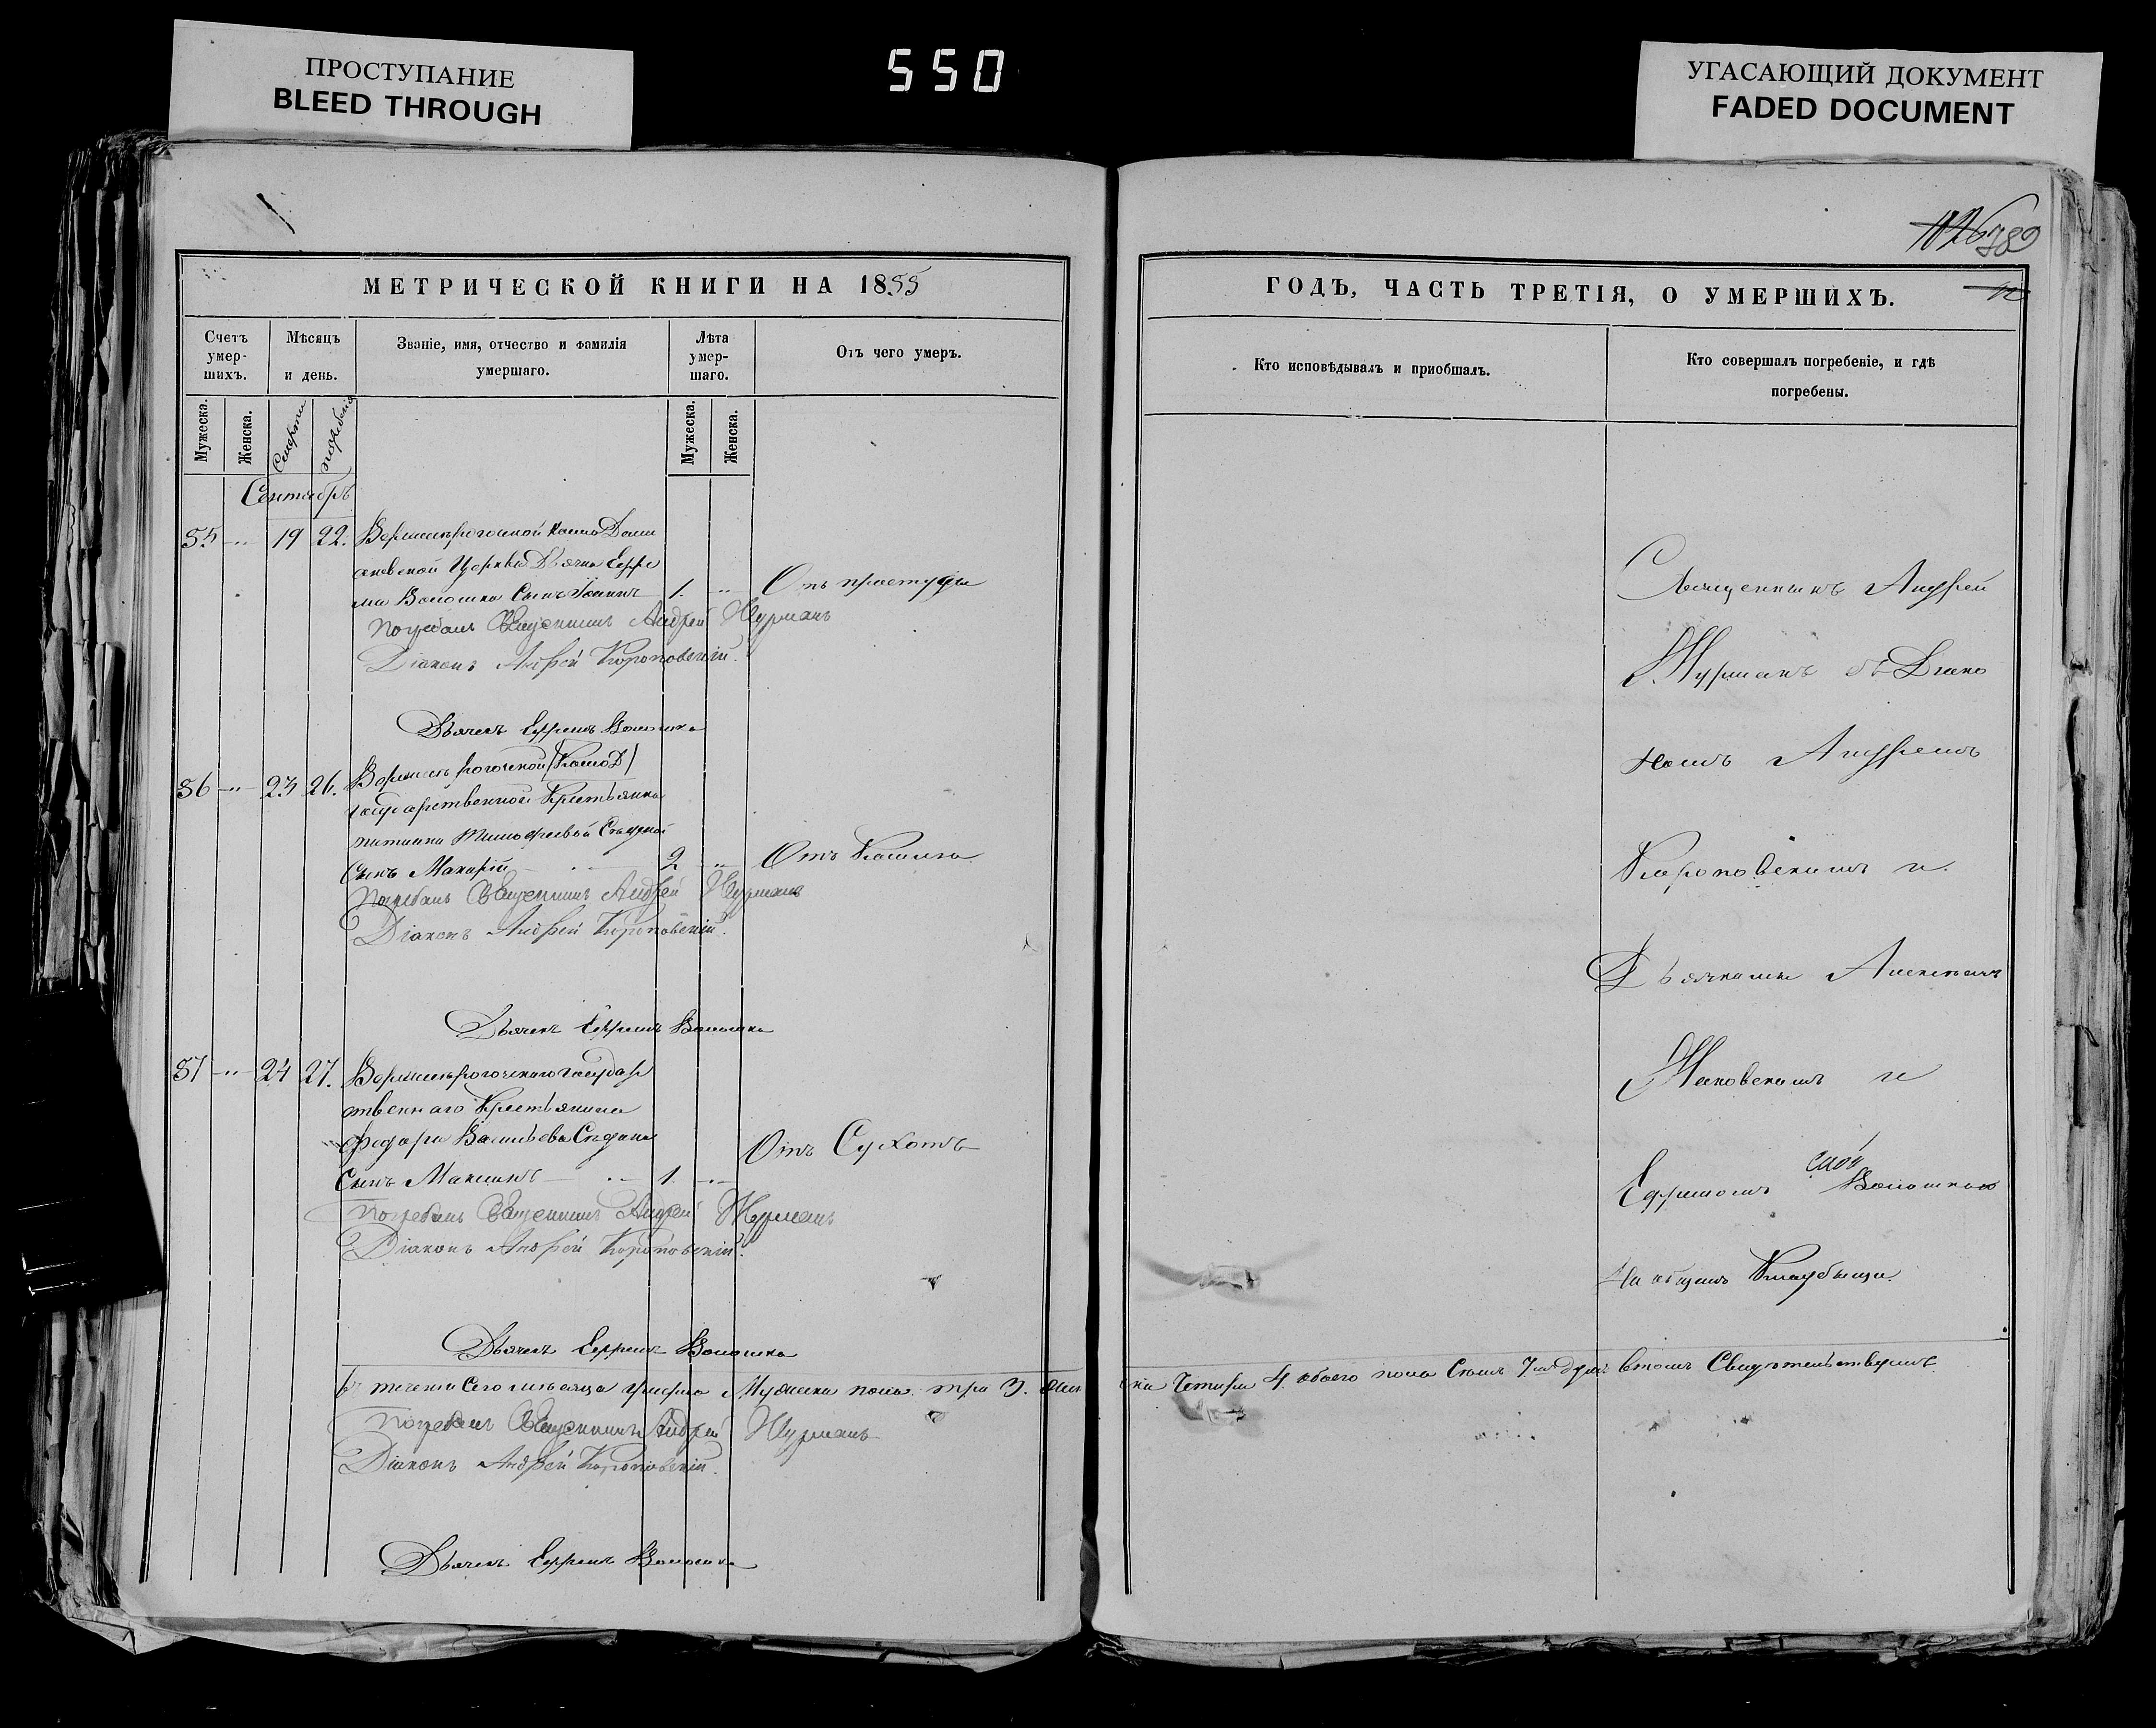 ПРОСТУПАНИЕ
BLEED THROUGH
550
УГАСАЮЩИЙ ДОКУМЕНТ
FADED DOCUMENT
989
МЕТРИЧЕСКОЙ КНИГИ НА 1855
Счетъ умер-шихъ.
Мѣсяцъ и день.
Званіе, имя, отчество и фамилія умершаго.
Лѣта умер-шаго.
Отъ чего умеръ.
Мужеска.
Женска.
Смерти
погребенія
Мужеска.
Женска.
Сентябрь
55 " 19 22. Верхнерогочской
Церкви Дьячка Ефре
ма Волошка Сынъ Іоаннъ 1. " Отъ простуды
Погребалъ Священникъ Андрей Журманъ
Діаконъ Андрей Короповскій.
Дьячекъ Ефремъ Волошка
56 " 23 26. Верхнерогочской
государственной Крестьянки
Тимофеевой
Сынъ Макарій 2 " Отъ Кашлю
Погребалъ Священникъ Андрей Журманъ
Діаконъ Андрей Короповскій.
Дьячекъ Ефремъ Волошка
57 " 24 27. Верхнерогочского государ
ственнаго Крестьянина
Федора Васильева
Сынъ Максимъ 1. " Отъ Сухотъ
Погребалъ Священникъ Андрей Журманъ
Діаконъ Андрей Короповскій.
Дьячекъ Ефремъ Волошка
въ теченіи Сего мѣсяца умерло Мужеска пола три 3. жен
Погребалъ Священникъ Андрей Журманъ
Діаконъ Андрей Короповскій.
Дьячекъ Ефремъ Волошка
ГОДЪ, ЧАСТЬ ТРЕТІЯ, О УМЕРШИХЪ.
Кто исповѣдывалъ и приобщалъ.
Кто совершалъ погребеніе, и гдѣ погребены.
Священникъ Андрей
Журманъ съ Діако
номъ Андреемъ
Короповскимъ и
Дьячками
и
Ефремомъ Волошкою
На общемъ Кладбищи.
ска Четыри 4. обоего пола Семь 7. въ томъ Свидѣтельствуемъ